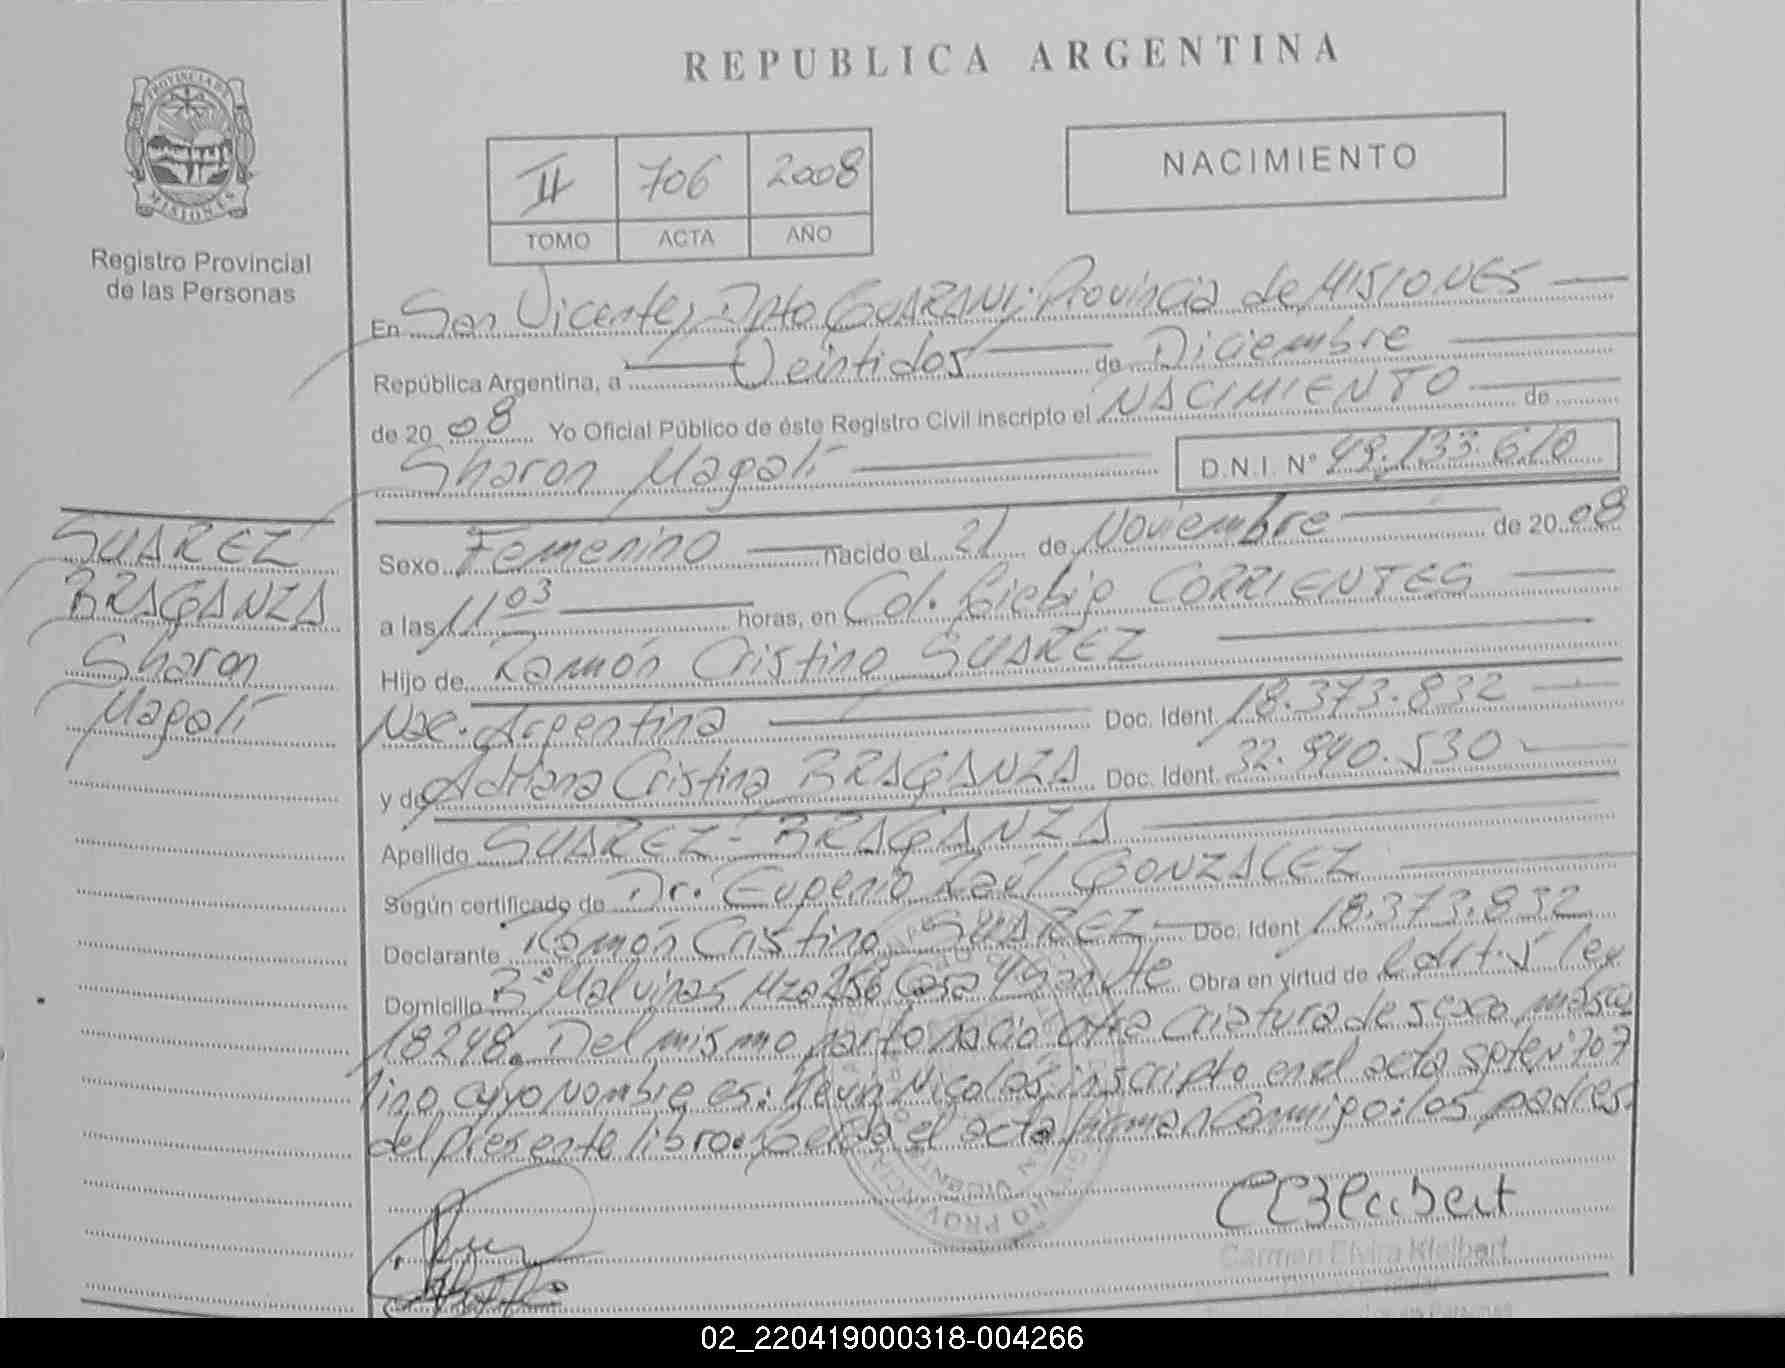 REPUBLICA ARGENTINA
PROVINCIA DE
MISIONES
Registro Provincial
de las Personas
II 706 2008
TOMO ACTA AÑO
NACIMIENTO
En San Vicente, Dpto GUARANI; Provincia de MISIONES
República Argentina, a Veintidos de Diciembre
de 2008 Yo Oficial Público de éste Registro Civil Inscripto el NACIMIENTO de
Sharon Magalí D.N.I. Nº 49.133.610
SUAREZ
BRAGANZA
Sharon
Magalí
Sexo Femenino nacido el 21 de Noviembre de 2008
a las 11 03 horas, en Col. CORRIENTES
Hijo de Ramón Cristino SUAREZ
Nac. Argentina Doc. Ident. 18.373.832
y de Adriana Cristina BRAGANZA Doc. Ident. 32.940.530
Apellido SUAREZ - BRAGANZA
Según certificado de Dr. Eugenio Raúl GONZALEZ
Declarante Ramón Cristino SUAREZ Doc. Ident 18.373.832
Domicilio Bº Malvinas Mza 256 Casa 4 Obra en virtud de l art. 5 ley
18248. Del mismo parto nació otra criatura de sexo mascu
lino, cuyo nombre es: Kevin Nicolás inscripto en el acta Nº 707
del presente libro. el acta firman conmigo: los padres.
Carmen Elvira Kleibert
02_220419000318-004266